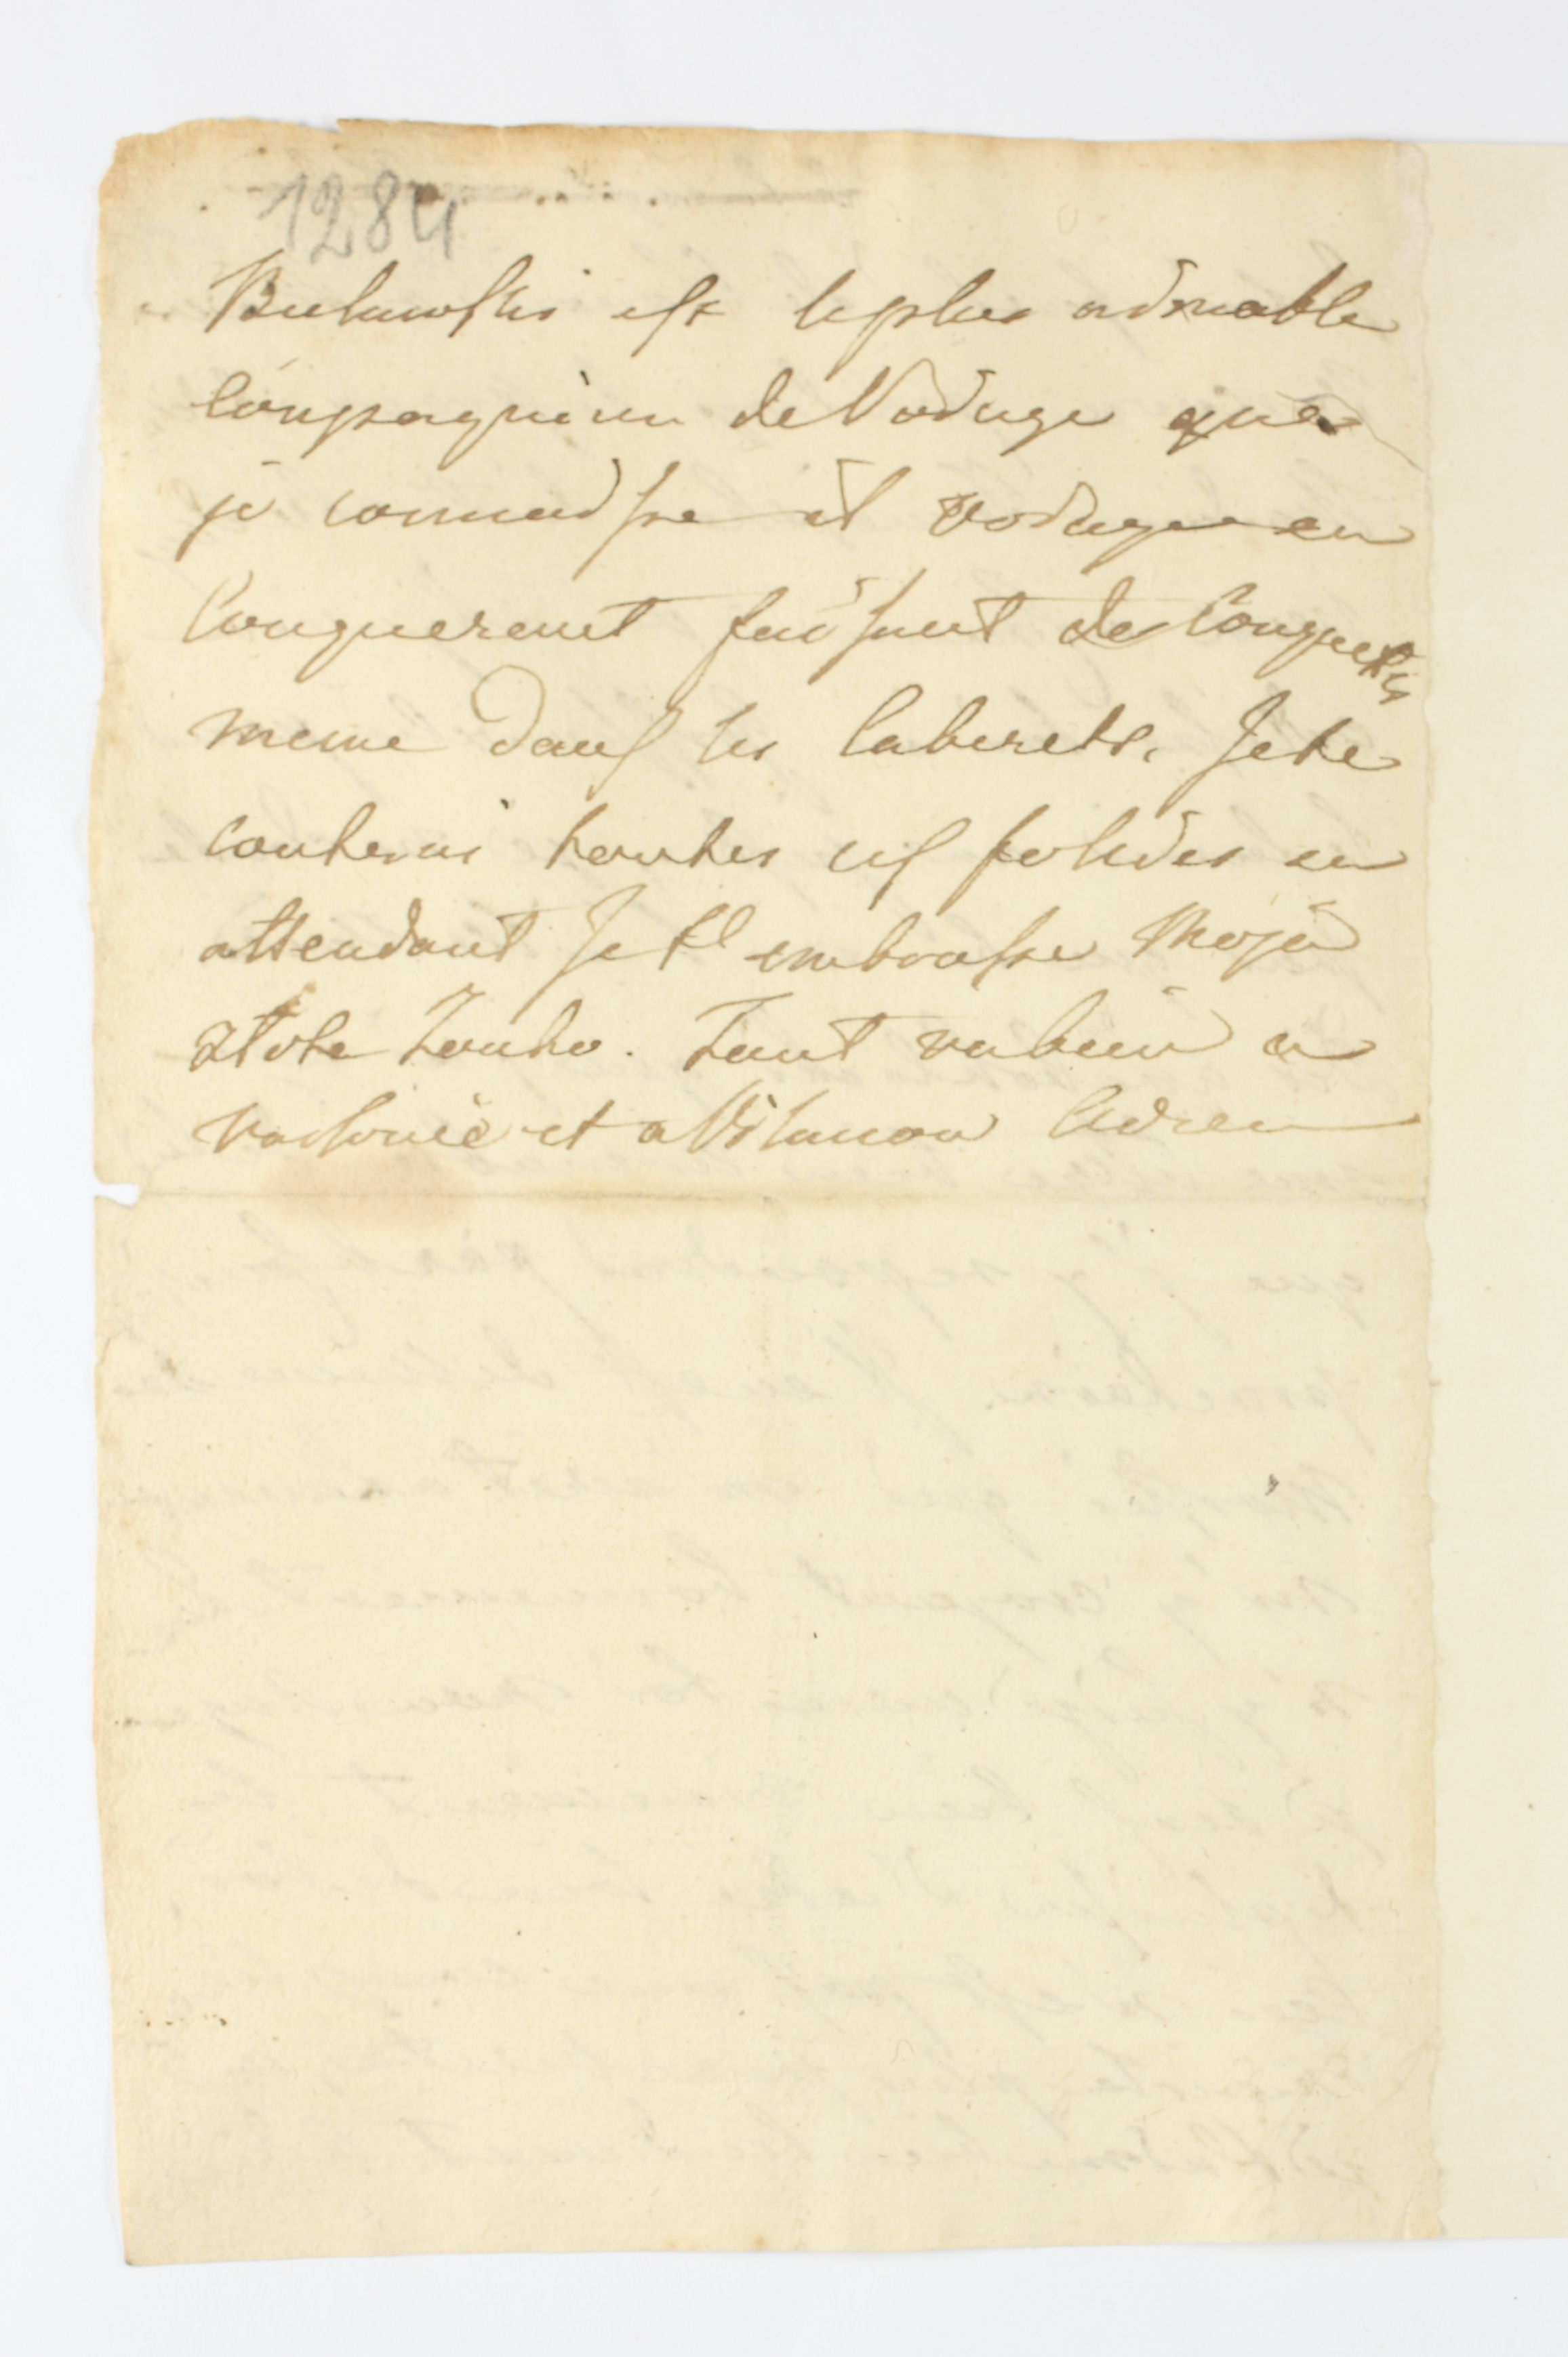 1284
Bukowski est le plus admable
Compagnion de Voduge que
je connudsse il voduge en
Conquerent fuissant des Conquetes
meme dans les Caberets. Je te
conterai toutes ces folides en
attendant Je t'embrasse Moja
zlota Zonko. Tout vabien a
Varsovie et a Vilanow Adieu